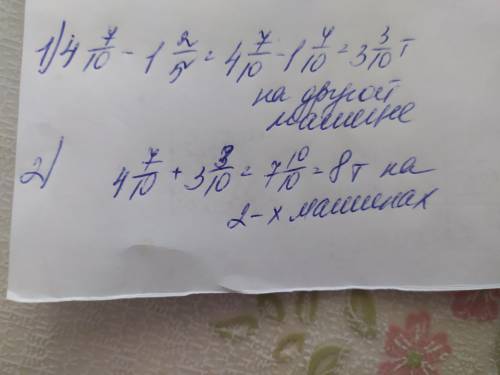 1) 4 7/10 - 1 2/5 = 4 7/10 - 1 4/10 = 3 3/10 т
на другой
машине
2) 4 7/10 + 3 3/10 = 7 10/10 = 8 т на
2-х машинах